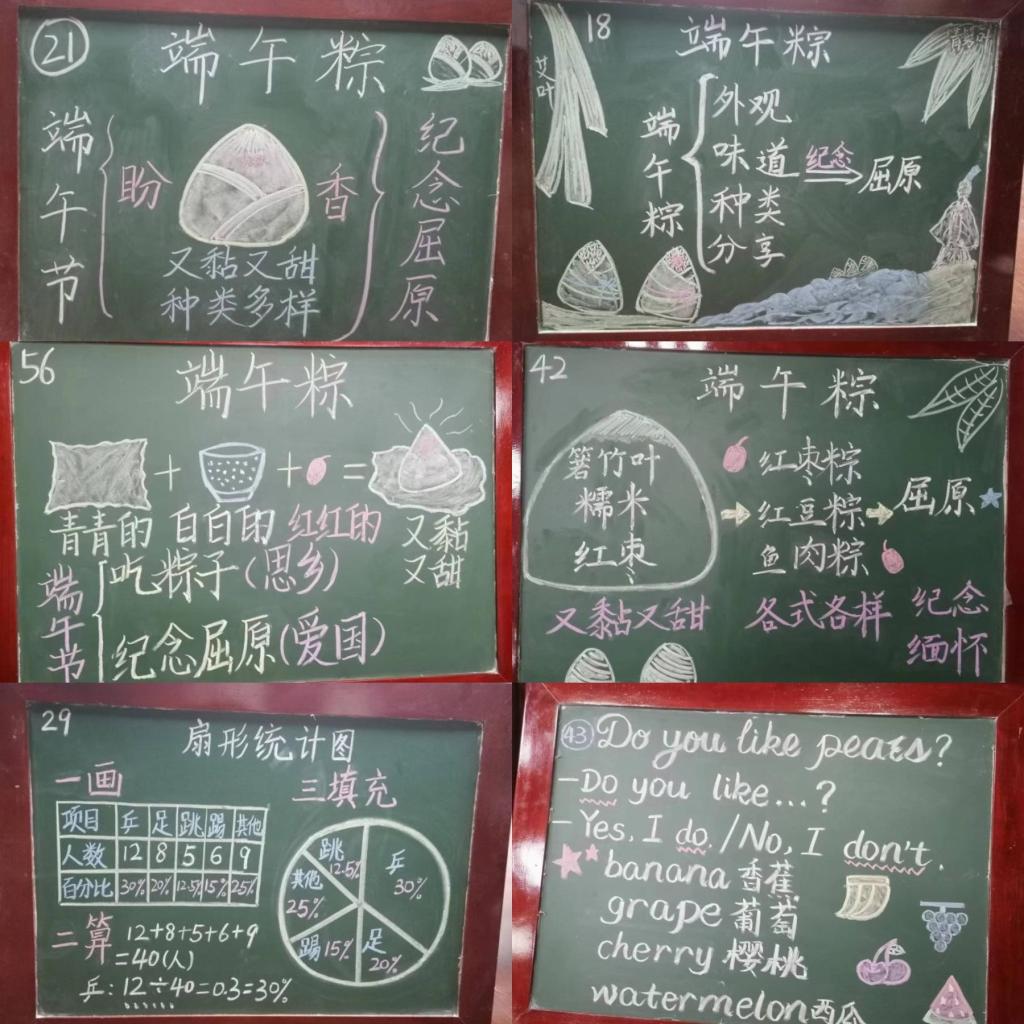 21
端午粽
端午节
盼
香
又黏又甜
种类多样
纪念屈原
18
端午粽
艾叶
端午粽
外观
味道
种类
分享
纪念
屈原
56
端午粽
+ + =
青青的 白白的 红红的 又黏
又甜
端午节
吃粽子(思乡)
纪念屈原(爱国)
42
端午粽
箬竹叶
糯米
红枣
红枣粽
红豆粽
鱼肉粽
屈原
又黏又甜 各式各样 纪念
缅怀
29
扇形统计图
一画
项目 乒 足 跳 踢 其他
人数 12 8 5 6 9
百分比 30% 20% 12.5% 15% 25%
二算 12+8+5+6+9
=40(人)
乒:12÷40=0.3=30%
三填充
跳 12.5%
乒 30%
其他 25%
踢 15%
足 20%
43
Do you like pears?
-Do you like...?
-Yes, I do./No, I don't.
banana 香蕉
grape 葡萄
cherry 樱桃
watermelon 西瓜